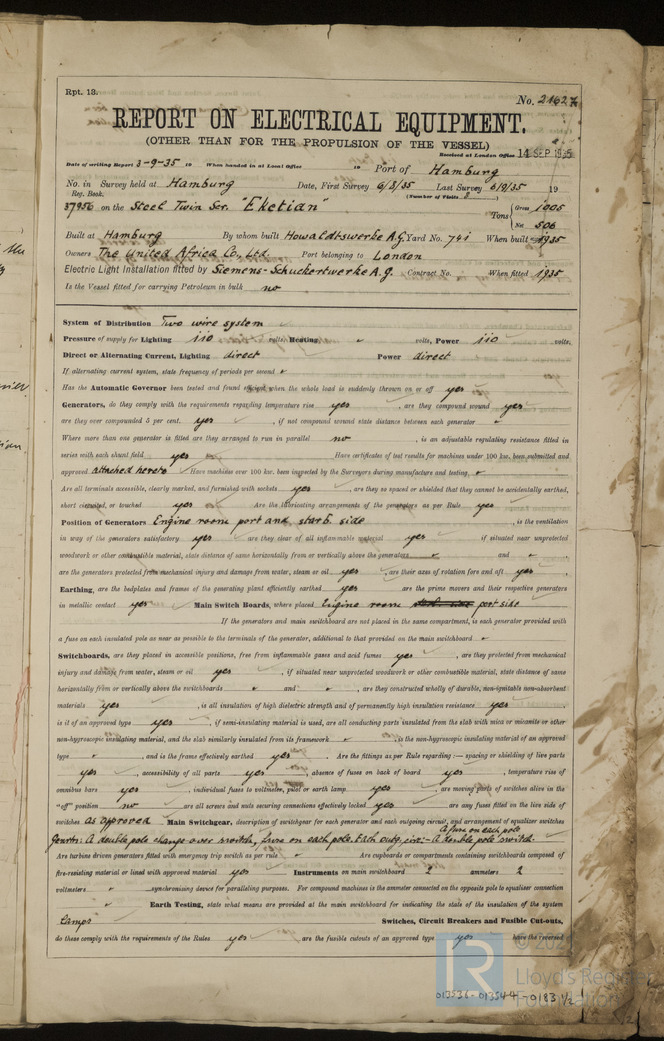 Rpt. 13.
No. 21627
REPORT ON ELECTRICAL EQUIPMENT.
(OTHER THAN FOR THE PROPULSION OF THE VESSEL)
Received at London Office 14 SEP 1935
Date of writing Report 3-9-35 19 When handed in at Local Office 19 Port of Hamburg
No. in Survey held at Hamburg Date, First Survey 6/3/35 Last Survey 6/9/35 19
Reg. Book. (Number of Visits
37956 on the Steel Twin Scr. "Eketian" Tons { Gross 1005
Net 506
Built at Hamburg By whom built Howaldtswerke A.G. Yard No. 741 When built 1935
Owners The United Africa Co., Ltd. Port belonging to London
Electric Light Installation fitted by Siemens-Schuckertwerke A.G. Contract No. When fitted 1935
Is the Vessel fitted for carrying Petroleum in bulk no
System of Distribution Two wire system
Pressure of supply for Lighting 110 volts, Heating volts, Power 110 volts.
Direct or Alternating Current, Lighting direct Power direct
If alternating current system, state frequency of periods per second
Has the Automatic Governor been tested and found efficient when the whole load is suddenly thrown on or off yes
Generators, do they comply with the requirements regarding temperature rise yes, are they compound wound yes
are they over compounded 5 per cent. yes, if not compound wound state distance between each generator
Where more than one generator is fitted are they arranged to run in parallel no, is an adjustable regulating resistance fitted in
series with each shunt field yes Have certificates of test results for machines under 100 kw. been submitted and
approved attached hereto Have machines over 100 kw. been inspected by the Surveyors during manufacture and testing,
Are all terminals accessible, clearly marked, and furnished with sockets yes, are they so spaced or shielded that they cannot be accidentally earthed,
short circuited, or touched yes Are the lubricating arrangements of the generators as per Rule yes
Position of Generators Engine room port and starb. side, is the ventilation
in way of the generators satisfactory yes are they clear of all inflammable material yes if situated near unprotected
woodwork or other combustible material, state distance of same horizontally from or vertically above the generators and
are the generators protected from mechanical injury and damage from water, steam or oil yes, are their axes of rotation fore and aft yes
Earthing, are the bedplates and frames of the generating plant efficiently earthed yes are the prime movers and their respective generators
in metallic contact yes Main Switch Boards, where placed Engine room port side
If the generators and main switchboard are not placed in the same compartment, is each generator provided with
a fuse on each insulated pole as near as possible to the terminals of the generator, additional to that provided on the main switchboard
Switchboards, are they placed in accessible positions, free from inflammable gases and acid fumes yes, are they protected from mechanical
injury and damage from water, steam or oil yes, if situated near unprotected woodwork or other combustible material, state distance of same
horizontally from or vertically above the switchboards and, are they constructed wholly of durable, non-ignitable non-absorbent
materials yes, is all insulation of high dielectric strength and of permanently high insulation resistance yes
is it of an approved type yes, if semi-insulating material is used, are all conducting parts insulated from the slab with mica or micanite or other
non-hygroscopic insulating material, and the slab similarly insulated from its framework, is the non-hygroscopic insulating material of an approved
type, and is the frame effectively earthed yes. Are the fittings as per Rule regarding:— spacing or shielding of live parts
yes, accessibility of all parts yes, absence of fuses on back of board yes, temperature rise of
omnibus bars yes, individual fuses to voltmeter, pilot or earth lamp yes, are moving parts of switches alive in the
"off" position no are all screws and nuts securing connections effectively locked yes are any fuses fitted on the live side of
switches as approved Main Switchgear, description of switchgear for each generator and each outgoing circuit, and arrangement of equalizer switches
A fuse on each pole
A double pole change over switch, fuse on each pole. Each outg. circ:- A double pole switch.
Are turbine driven generators fitted with emergency trip switch as per rule Are cupboards or compartments containing switchboards composed of
fire-resisting material or lined with approved material yes Instruments on main switchboard 2 ammeters 2
voltmeters synchronising device for paralleling purposes. For compound machines is the ammeter connected on the opposite pole to equaliser connection
Earth Testing, state what means are provided at the main switchboard for indicating the state of the insulation of the system
lamps Switches, Circuit Breakers and Fusible Cut-outs,
do these comply with the requirements of the Rules yes, are the fusible cutouts of an approved type yes have the reversed
LR
Lloyd's Register
Foundation
013536-013544-0183 1/2